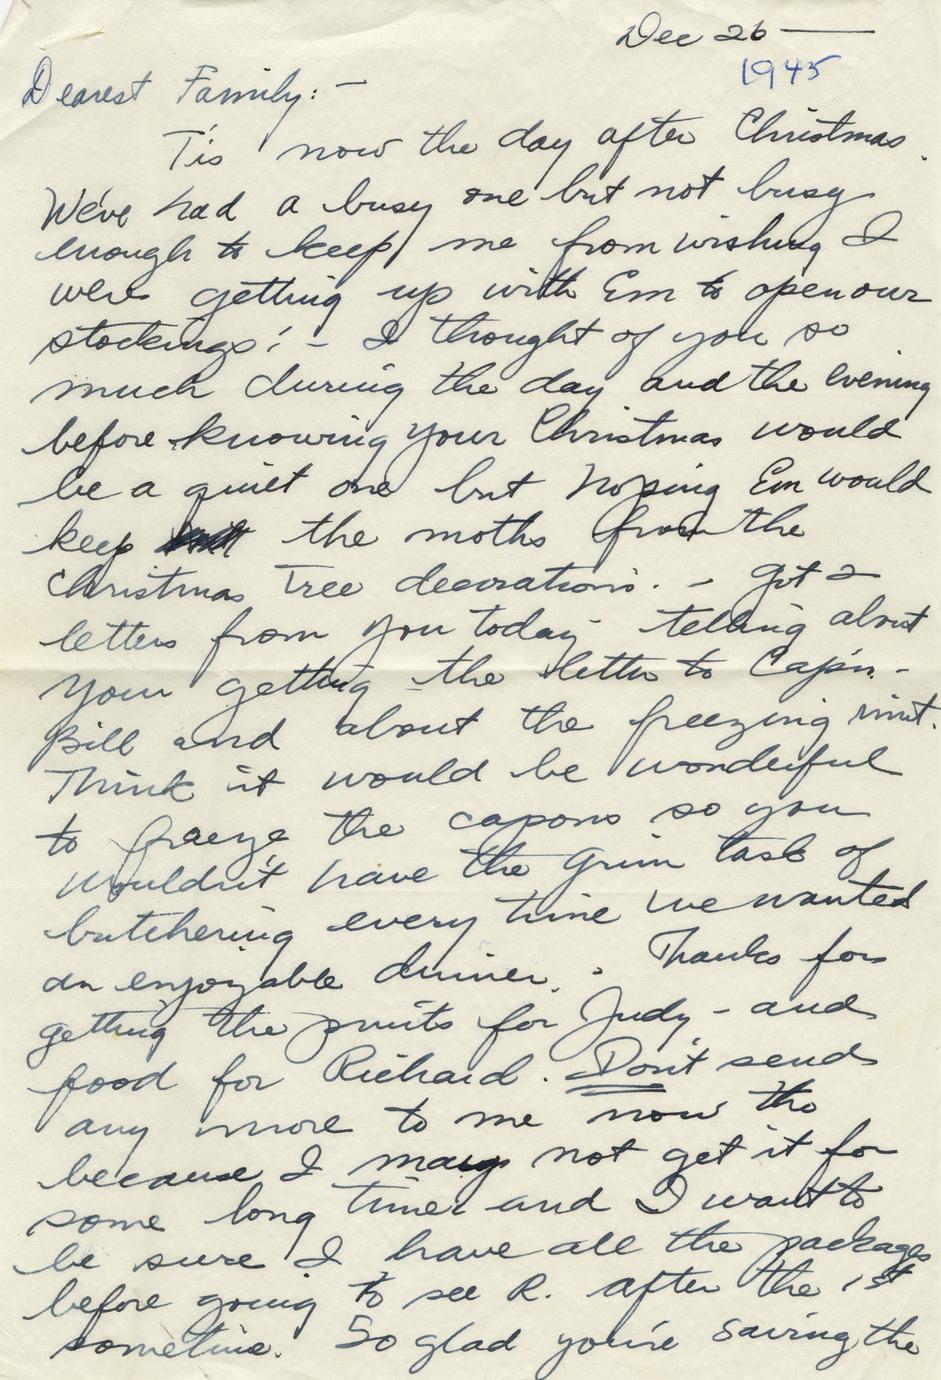 Dec 26 —
1945
Dearest Family: -
Tis now the day after Christmas.
We've had a busy one but not busy
enough to keep me from wishing I
were getting up with Em to open our
stockings! - I thought of you so
much during the day and the evening
before knowing your Christmas would
be a quiet one but hoping Em would
keep the moths from the
Christmas Tree decorations. - Got 2
letters from you today telling about
your getting the letter to Cap'n. -
Bill and about the freezing unit.
Think it would be wonderful
to freeze the capons so you
wouldn't have the grim task of
butchering every time we wanted
an enjoyable dinner. - Thanks for
getting the prints for Judy - and
food for Richard. Don't send
any more to me now tho
because I may not get it for
some long time and I want to
be sure I have all the packages
before going to see R. after the 1st
sometime. So glad you're saving the